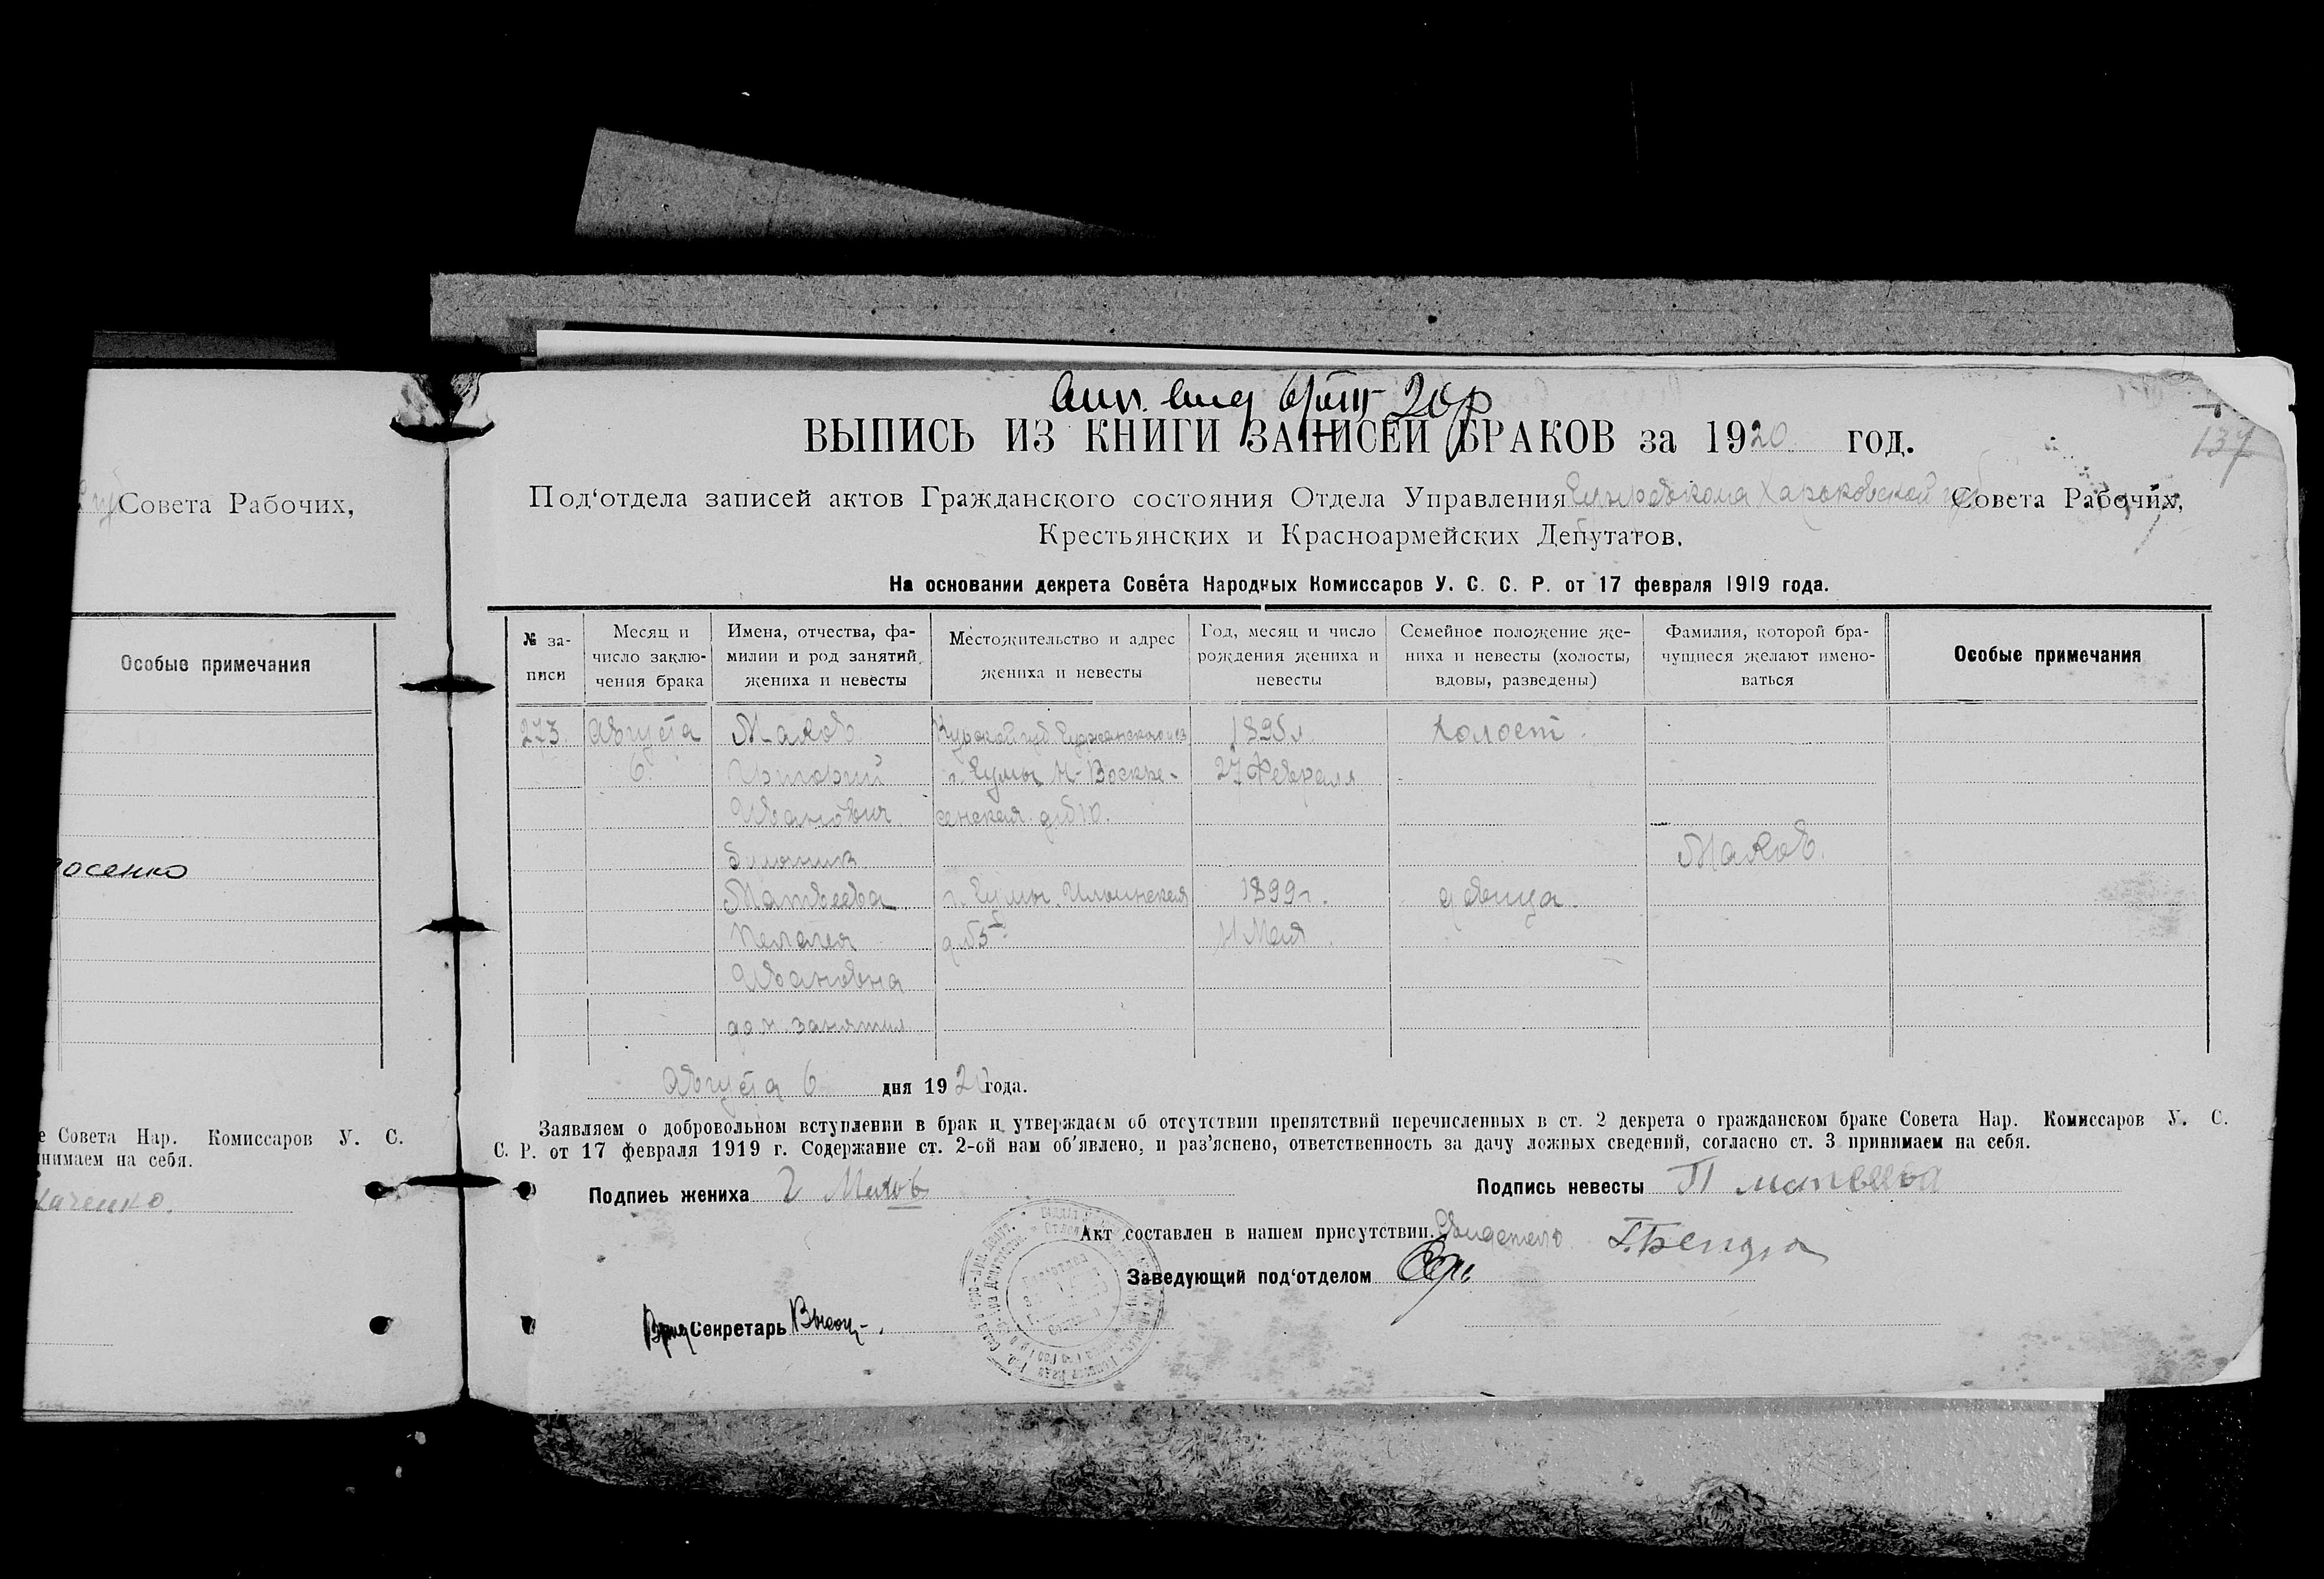 Совета Рабочих,
Особые примечания
осенко
е Совета Нар. Комиссаров У. С.
нимаем на себя.
каченко.
6/VIII 20
ВЫПИСЬ ИЗ КНИГИ ЗАПИСЕЙ БРАКОВ за 1920 год.
137
Под‘отдела записей актов Гражданского состояния Отдела Управления Сумревкома Харьковской губ Совета Рабочих,
Крестьянских и Красноармейских Депутатов.
На основании декрета Совета Народных Комиссаров У. С. С. Р. от 17 февраля 1919 года.
№ за-
писи
Месяц и
число заклю-
чения брака
Имена, отчества, фа-
милии и род занятий
жениха и невесты
Местожительство и адрес
жениха и невесты
Год, месяц и число
рождения жениха и
невесты
Семейное положение же-
ниха и невесты (холосты,
вдовы, разведены)
Фамилия, которой бра-
чущиеся желают имено-
ваться
Особые примечания
273. Августа Маков Курской губ Суджанского уез 1895г. Холост.
6. Григорий г. Сумы Н-Воскре- 27 Февраля
Иванович сенская д. №10.
Маков.
Матвеева г. Сумы Ильинская 1899г. девица.
Пелагея д №5 Мая
Ивановна
дом. занятия
Августа 6 дня 1920 года.
Заявляем о добровольном вступлении в брак и утверждаем об отсутствии препятствий перечисленных в ст. 2 декрета о гражданском браке Совета Нар. Комиссаров У. С.
С. Р. от 17 февраля 1919 г. Содержание ст. 2-ой нам об’явлено, и раз’яснено, ответственность за дачу ложных сведений, согласно ст. 3 принимаем на себя.
Подпись жениха Г Маков
Подпись невесты П Матвеева
Акт составлен в нашем присутствии.
Заведующий под‘отделом
Секретарь